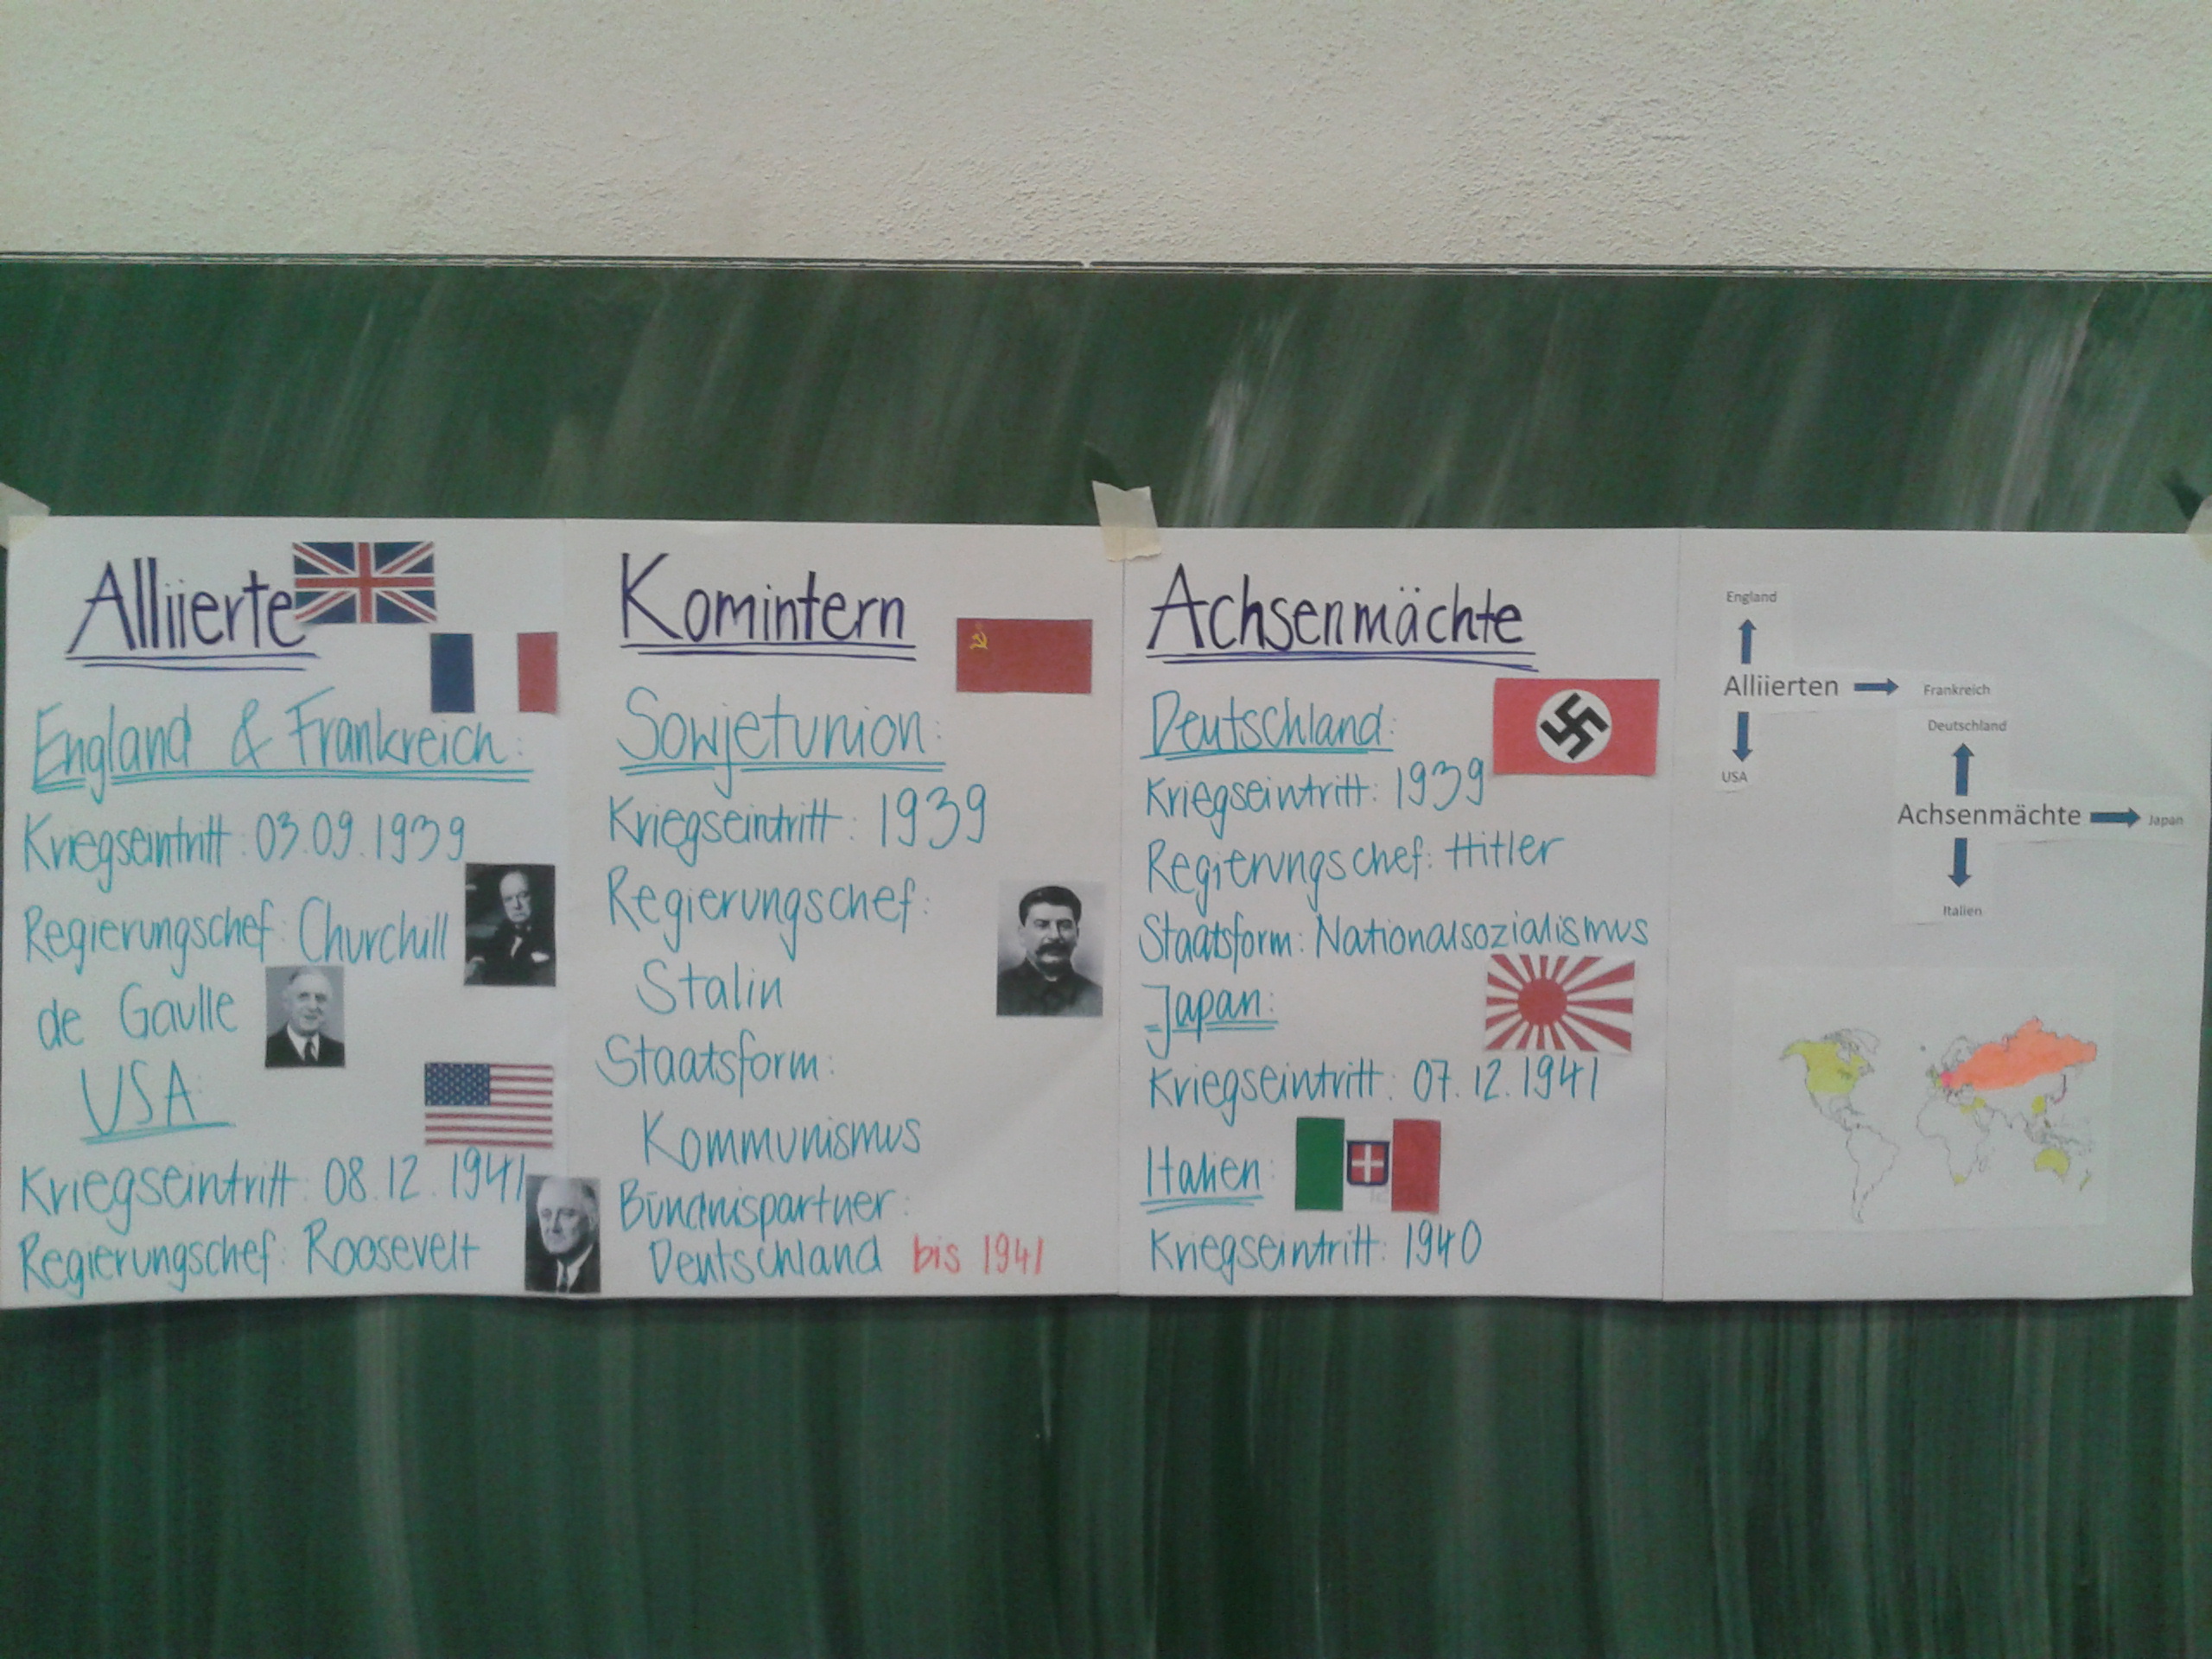 Alliierte
England & Frankreich:
Kriegseintritt: 03.09.1939
Regierungschef: Churchill
de Gaulle
USA:
Kriegseintritt: 08.12.1941
Regierungschef: Roosevelt
Komintern
Sowjetunion:
Kriegseintritt: 1939
Regierungschef:
Stalin
Staatsform:
Kommunismus
Bündnispartner:
Deutschland bis 1941
Achsenmächte
Deutschland:
Kriegseintritt: 1939
Regierungschef: Hitler
Staatsform: Nationalsozialismus
Japan:
Kriegseintritt: 07.12.1941
Italien:
Kriegseintritt: 1940
England
Alliierten
Frankreich
USA
Deutschland
Achsenmächte
Japan
Italien